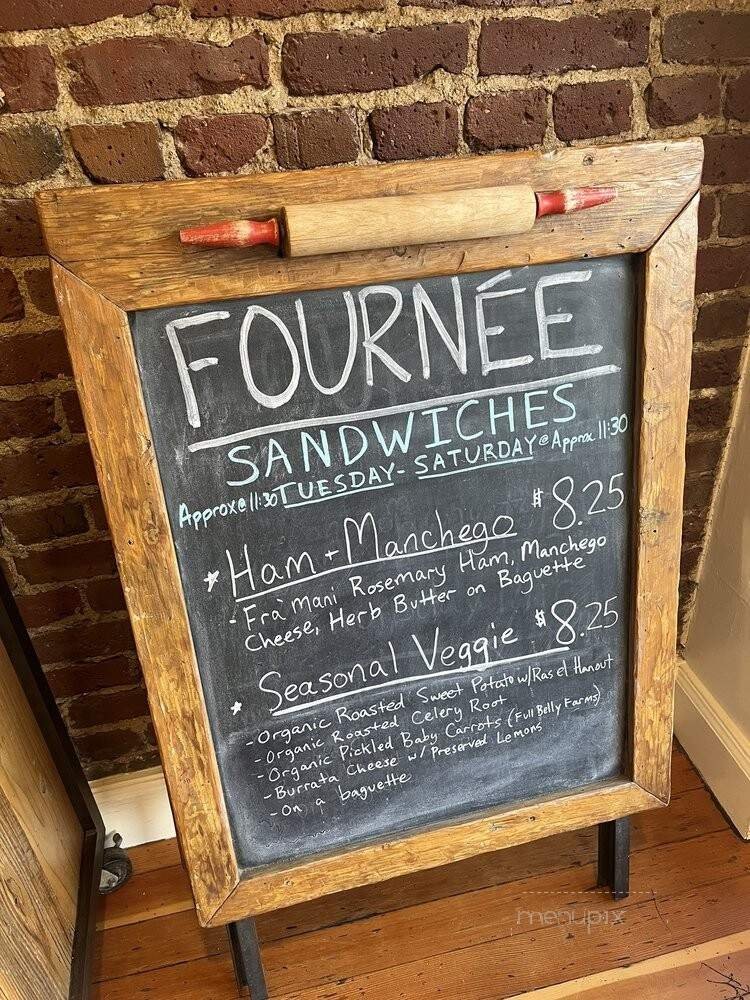 FOURNÉE
SANDWICHES
Approx@11:30 TUESDAY - SATURDAY @ Approx 11:30
* Ham + Manchego $8.25
- Fra'Mani Rosemary Ham, Manchego
Cheese, Herb Butter on Baguette
* Seasonal Veggie $8.25
- Organic Roasted Sweet Potato w/Ras el Hanout
- Organic Roasted Celery Root
- Organic Pickled Baby Carrots (Full Belly Farms)
- Burrata Cheese w/ Preserved Lemons
- On a baguette
menupix